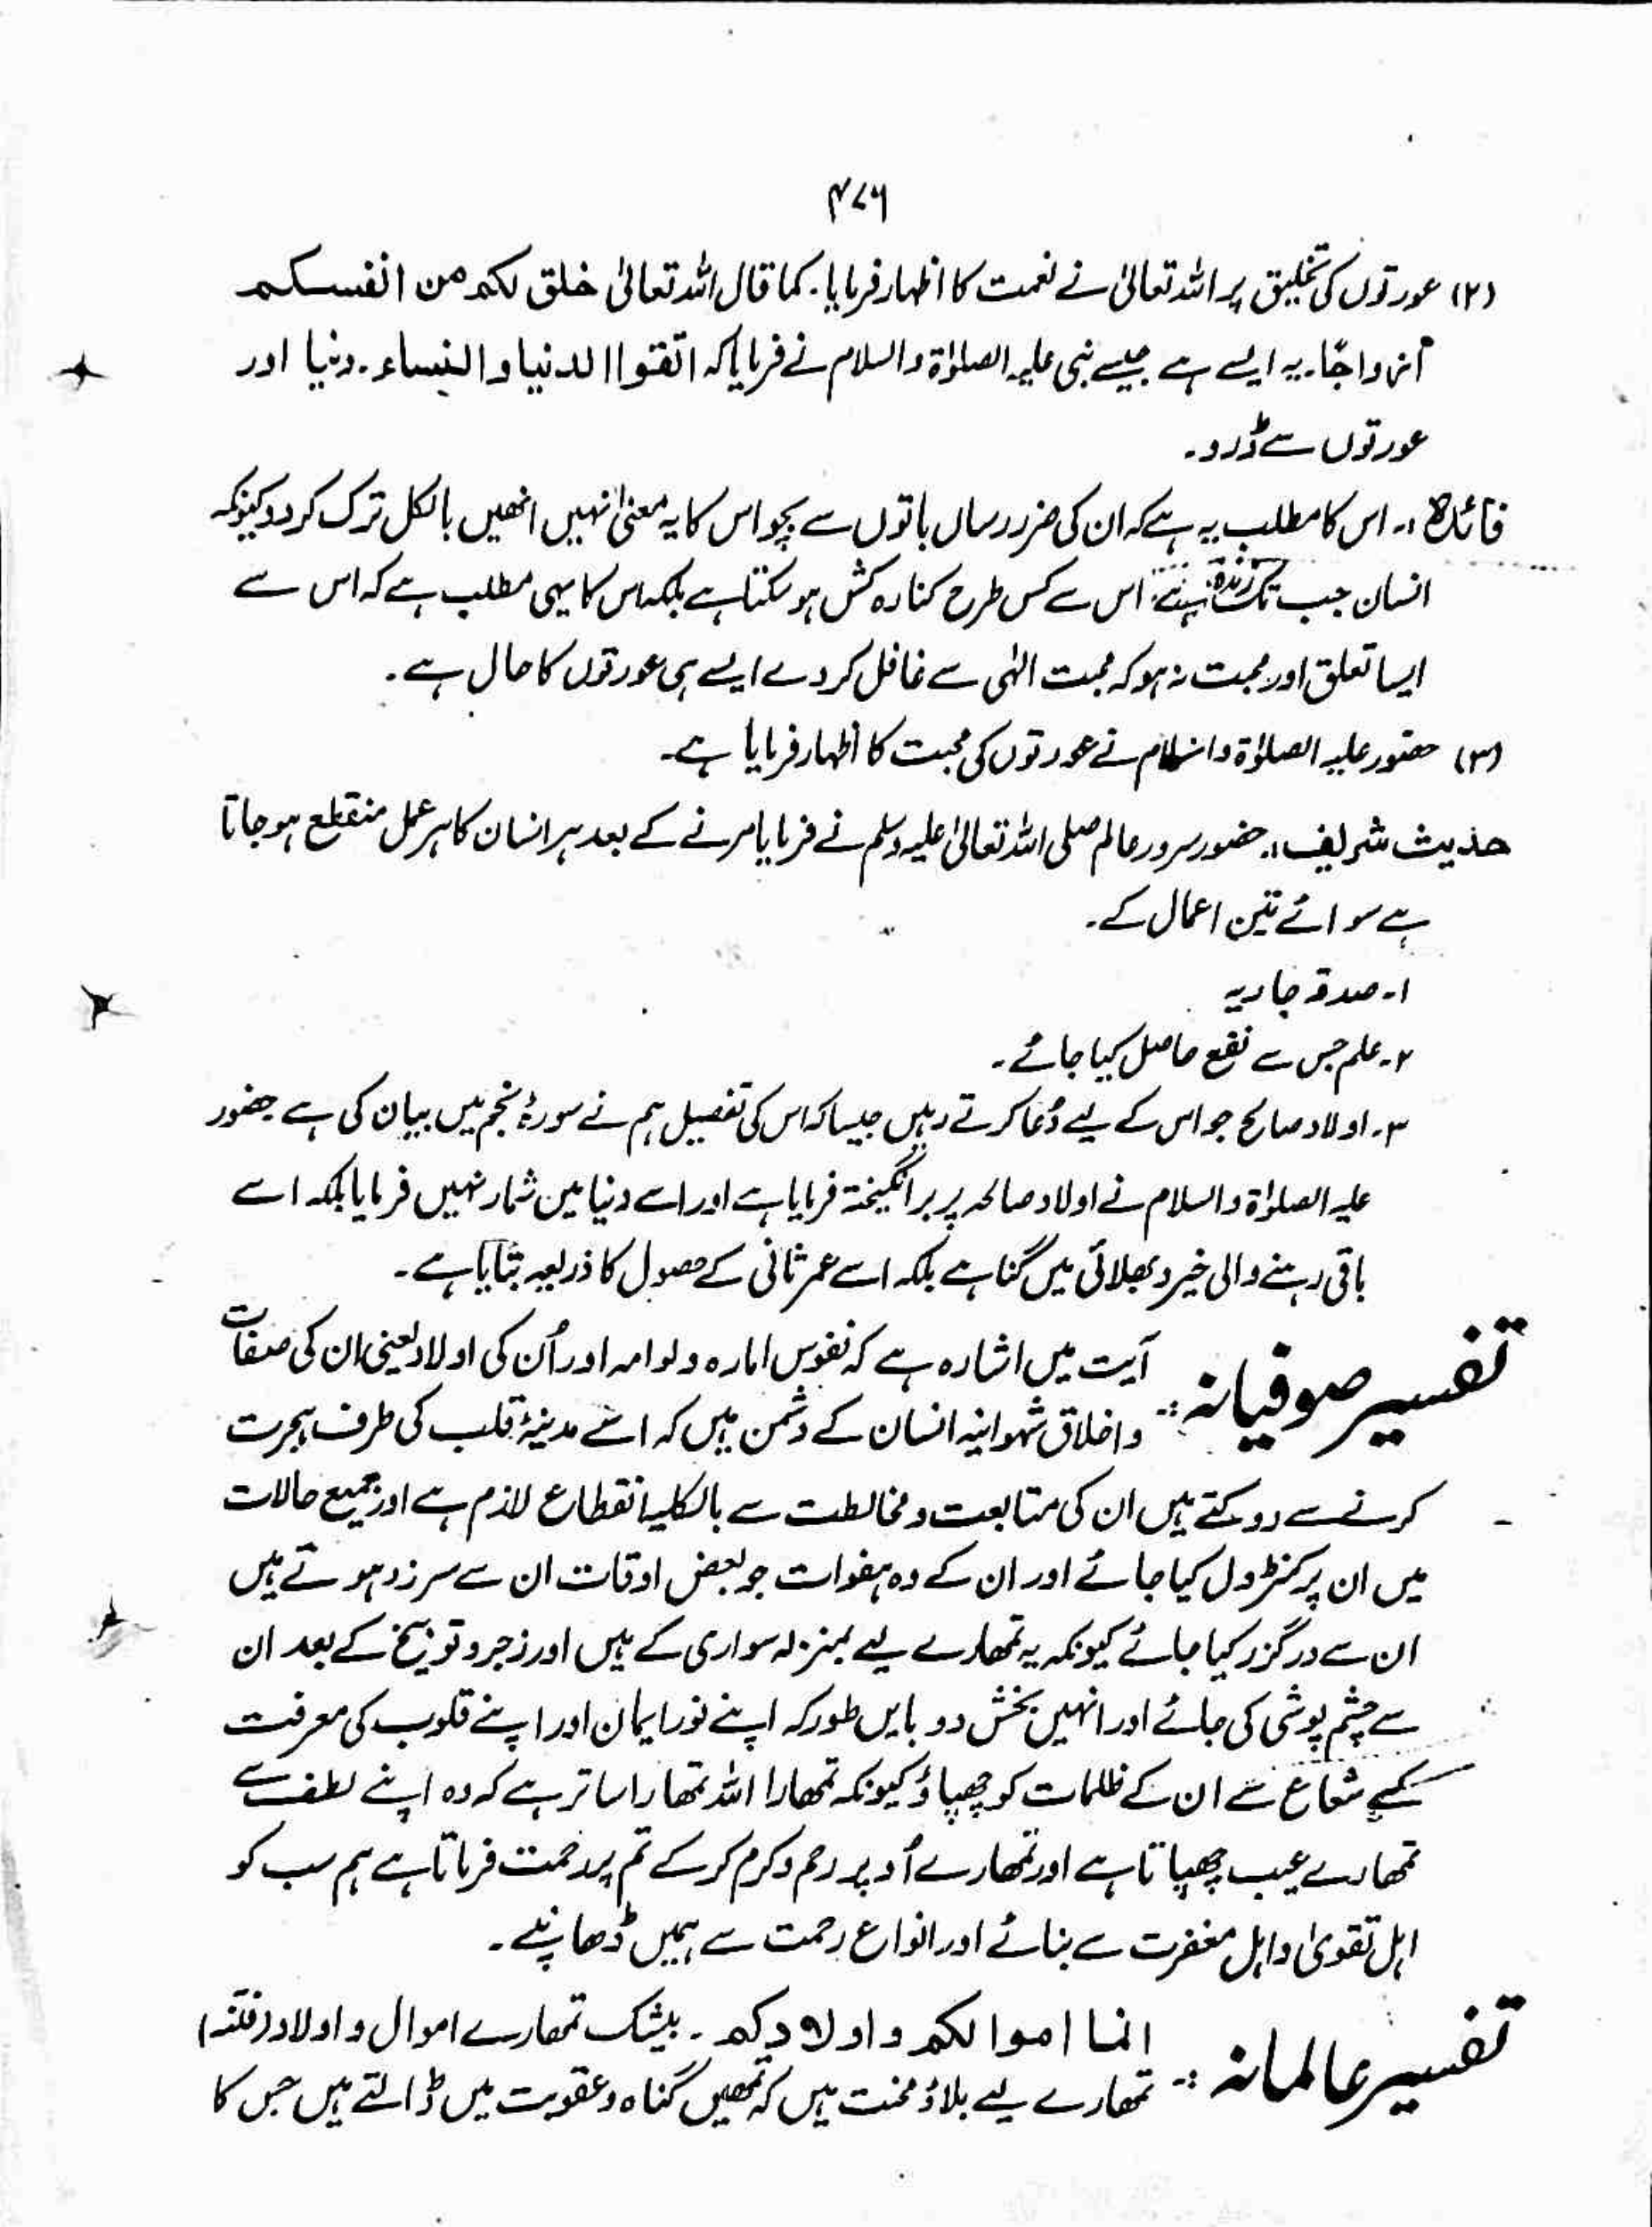 ۴۷۶
(۲) عورتوں کی تخلیق پر اللہ تعالیٰ نے نعمت کا اظہار فرمایا۔ کما قال اللہ تعالیٰ خلق لکم من انفسکم
ازواجًا۔ یہ ایسے ہے جیسے نبی علیہ الصلوٰۃ والسلام نے فرمایا کہ اتقوا الدنیا والنساء۔ دنیا اور
عورتوں سے ڈرو۔
فائدہ:۔ اس کا مطلب یہ ہے کہ ان کی ضرر رساں باتوں سے بچو اس کا یہ معنیٰ نہیں انھیں بالکل ترک کر دو کیونکہ
انسان جب تک زندہ ہے اس سے کس طرح کنارہ کش ہو سکتا ہے بلکہ اس کا یہی مطلب ہے کہ اس سے
ایسا تعلق اور محبت نہ ہو کہ محبت الٰہی سے غافل کر دے ایسے ہی عورتوں کا حال ہے۔
(۳) حضور علیہ الصلوٰۃ والسلام نے عورتوں کی محبت کا اظہار فرمایا ہے۔
حدیث شریف:۔ حضور سرور عالم صلی اللہ تعالیٰ علیہ وسلم نے فرمایا مرنے کے بعد ہر انسان کا ہر عمل منقطع ہو جاتا
ہے سوائے تین اعمال کے۔
۱۔ صدقہ جاریہ
۲۔ علم جس سے نفع حاصل کیا جائے۔
۳۔ اولاد صالح جو اس کے لیے دُعا کرتے رہیں جیسا کہ اس کی تفصیل ہم نے سورۂ نجم میں بیان کی ہے حضور
علیہ الصلوٰۃ والسلام نے اولاد صالحہ پر برانگیختہ فرمایا ہے اور اسے دنیا میں شمار نہیں فرمایا بلکہ اسے
باقی رہنے والی خیر و بھلائی میں گنا ہے بلکہ اسے عمر ثانی کے حصول کا ذریعہ بتایا ہے۔
تفسیر صوفیانہ:۔ آیت میں اشارہ ہے کہ نفوس امارہ و لوامہ اور اُن کی اولاد یعنی ان کی صفات
و اخلاق شہوانیہ انسان کے دشمن ہیں کہ اسے مدینۂ قلب کی طرف ہجرت
کرنے سے روکتے ہیں ان کی متابعت و مخالطت سے بالکلیہ انقطاع لازم ہے اور جمیع حالات
میں ان پر کنٹرول کیا جائے اور ان کے وہ ہفوات جو بعض اوقات ان سے سرزد ہوتے ہیں
ان سے درگزر کیا جائے کیونکہ یہ تمھارے لیے بمنزلہ سواری کے ہیں اور زجر و توبیخ کے بعد ان
سے چشم پوشی کی جائے اور انہیں بخش دو بایں طور کہ اپنے نور ایمان اور اپنے قلوب کی معرفت
کے شعاع سے ان کے ظلمات کو چھپاؤ کیونکہ تمھارا اللہ تمھارا ساتر ہے کہ وہ اپنے لطف سے
تمھارے عیب چھپاتا ہے اور تمھارے اُوپر رحم و کرم کر کے تم پر رحمت فرماتا ہے ہم سب کو
اہل تقویٰ و اہل مغفرت سے بنائے اور انواع رحمت سے ہمیں ڈھانپے۔
تفسیر عالمانہ:۔ انما اموالکم و اولادکم۔ بیشک تمھارے اموال و اولاد (فتنہ)
تمھارے لیے بلاؤ محنت ہیں کہ تمھیں گناہ و عقوبت میں ڈالتے ہیں جس کا